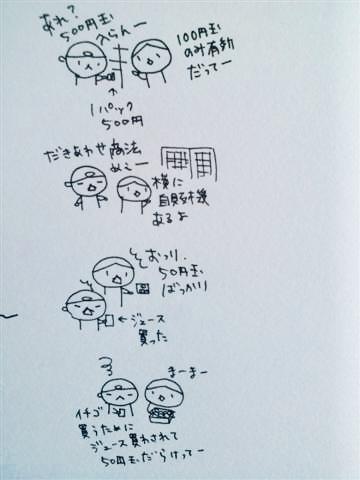 あれ?
500円玉
入らんー
100円玉
のみ有効
だってー
↑
1パック
500円
だきあわせ商法
めぇー
横に
自販機
あるよ
おつり、
50円玉
ばっかり
←ジュース
買った
まーまー
イチゴ
買うために
ジュース買わされて
50円玉だらけってー